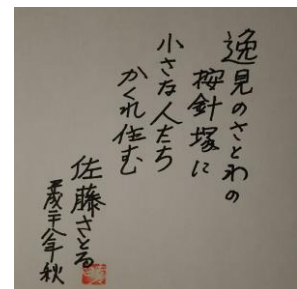 逸見のさとわの
按針塚に
小さな人たち
かくれ住む
佐藤さとる
平成二十八年秋